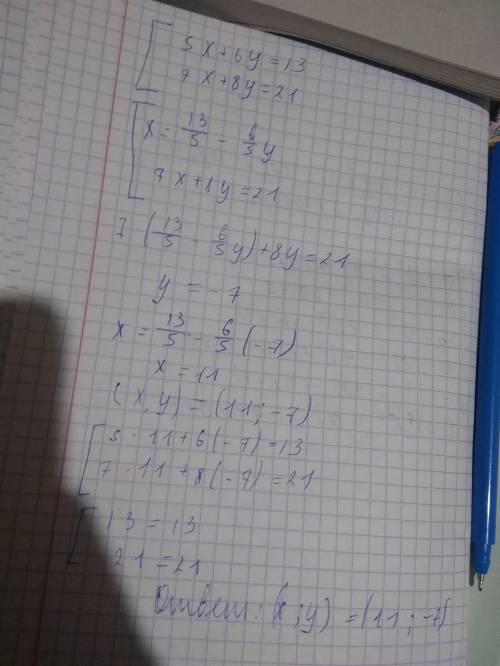 5x+6y=13
7x+8y=21
x=13/5-6/5y
7x+8y=21
7(13/5-6/5y)+8y=21
y=-7
x=13/5-6/5(-7)
x=11
(x,y)=(11;-7)
5·11+6(-7)=13
7·11+8(-7)=21
13=13
21=21
Ответ:(x;y)=(11;-7)